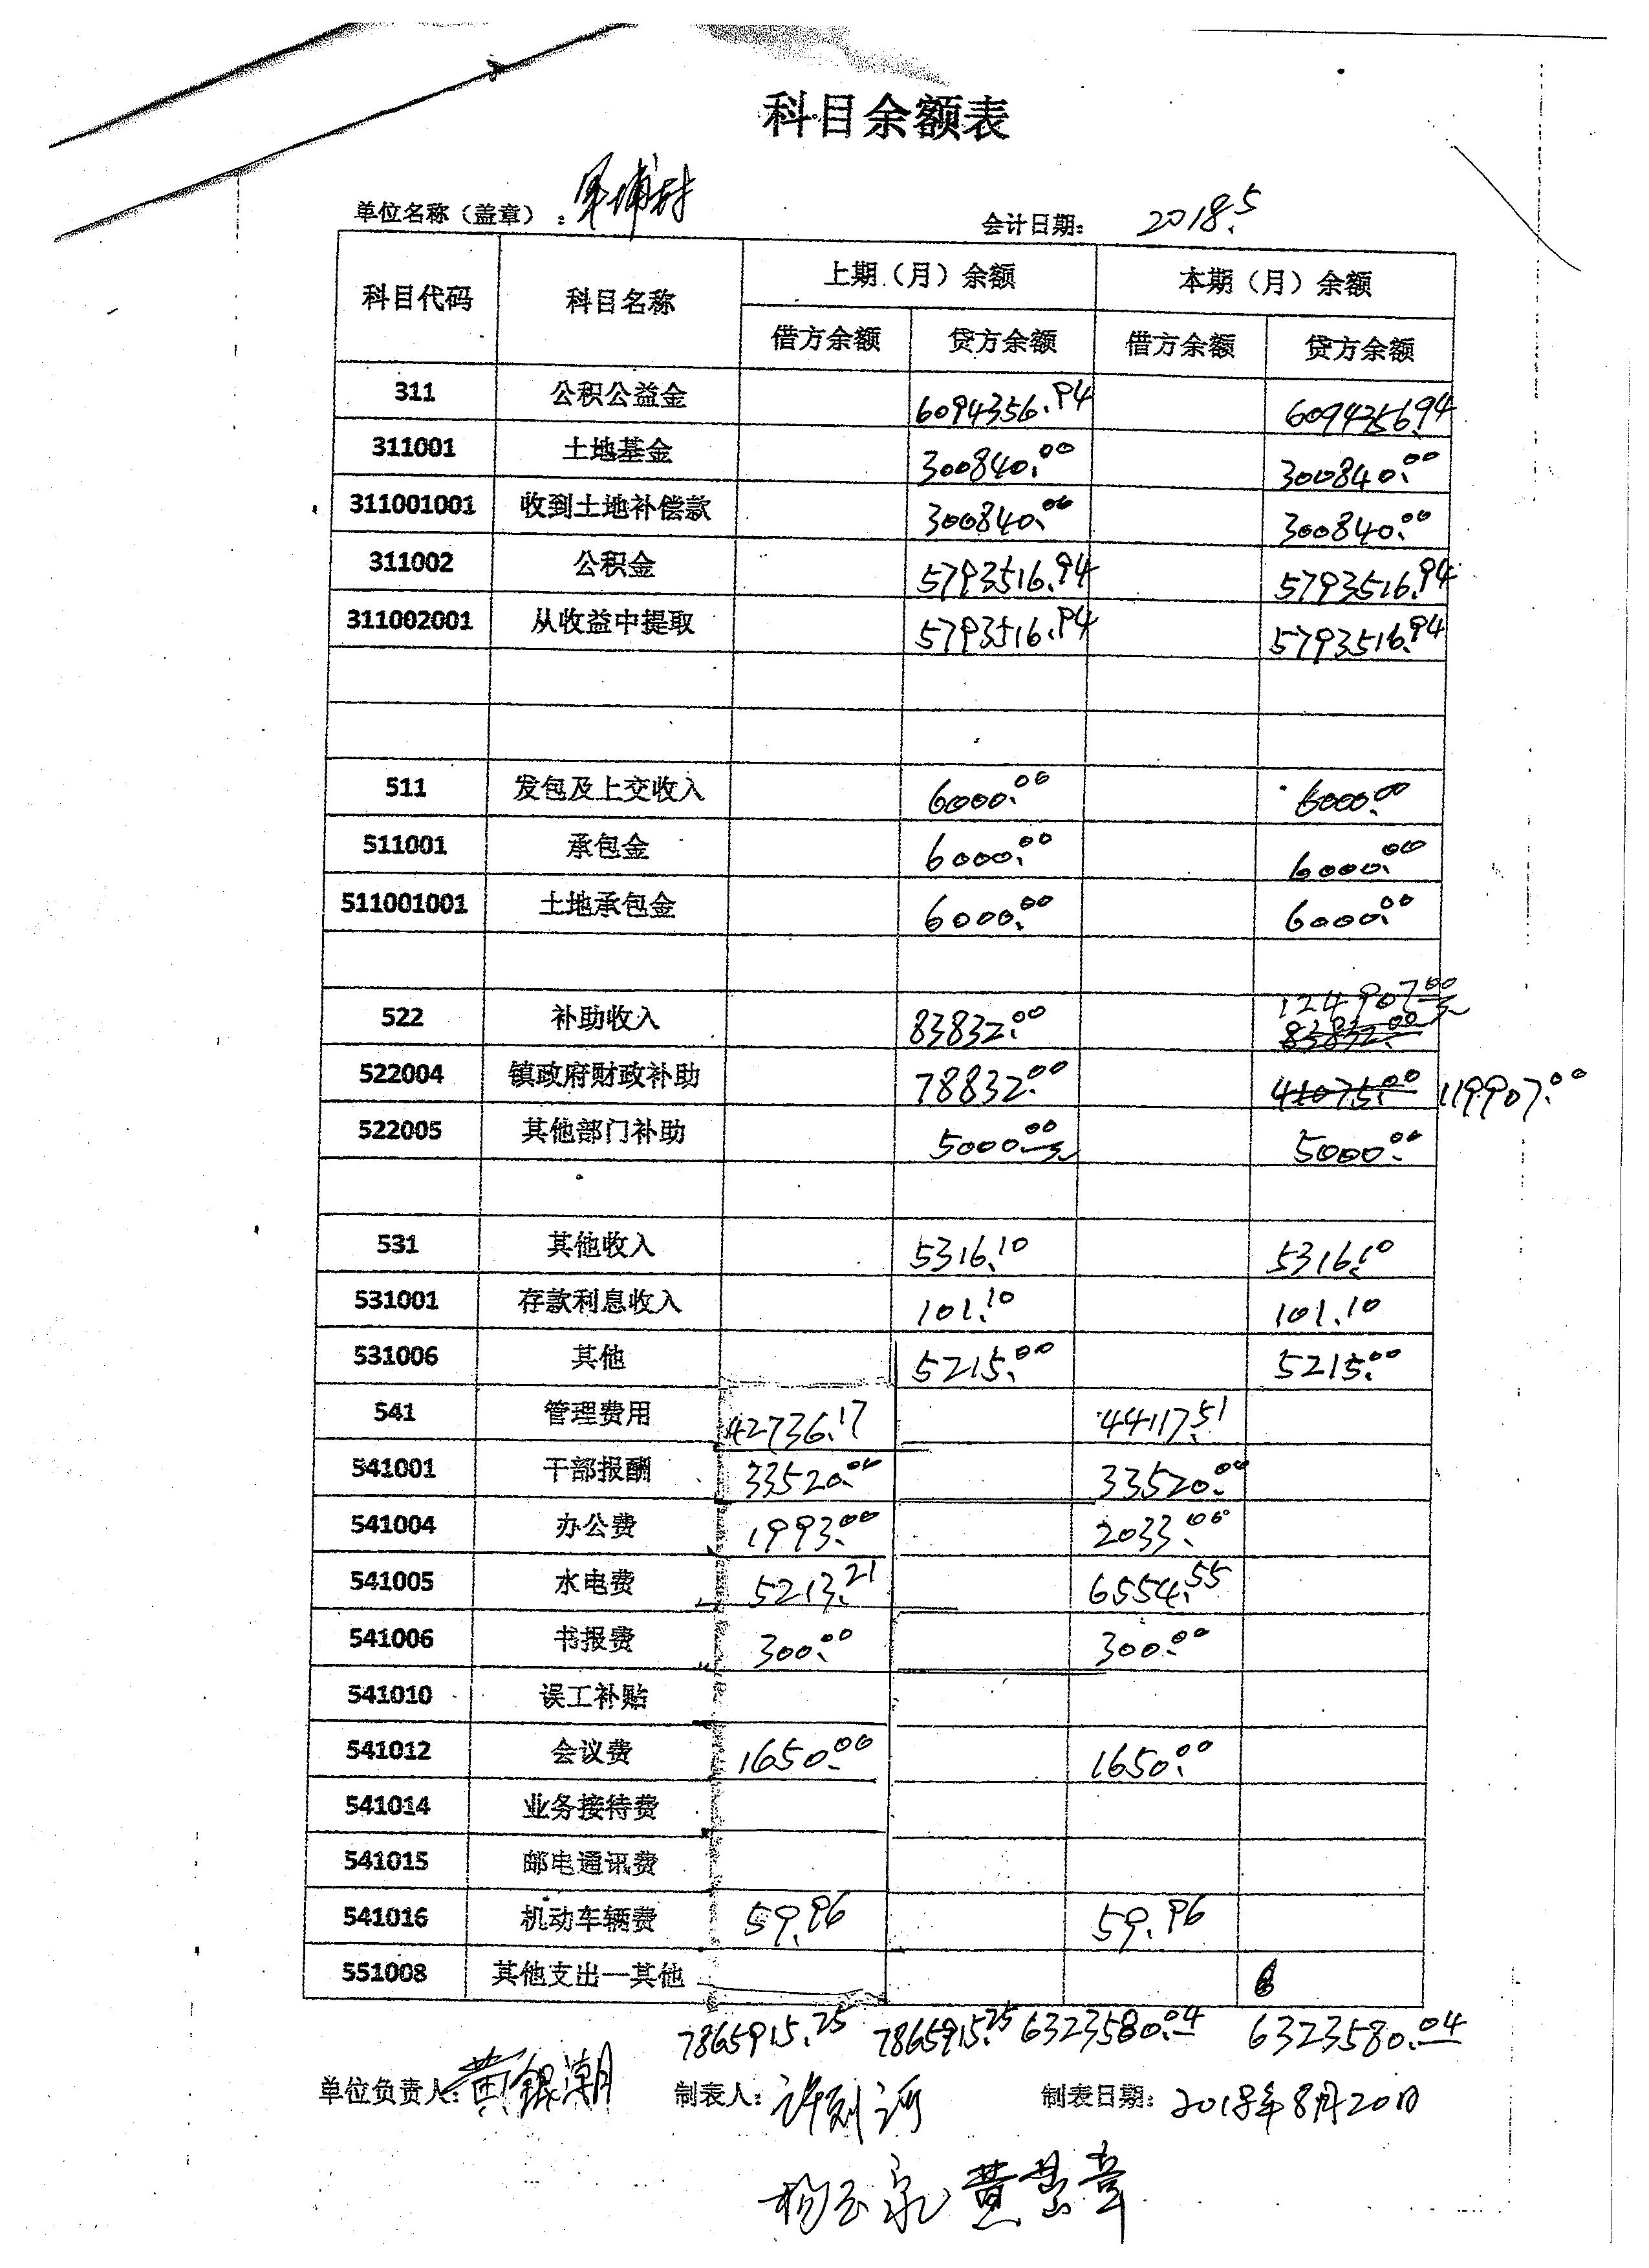 科目余额表
单位名称（盖章）： 会计日期： 2018.5
科目代码 科目名称 上期（月）余额 本期（月）余额
借方余额 贷方余额 借方余额 贷方余额
311 公积公益金 6094356.94 6094356.94
311001 土地基金 300840.00 300840.00
311001001 收到土地补偿款 300840.00 300840.00
311002 公积金 5793516.94 5793516.94
311002001 从收益中提取 5793516.94 5793516.94
511 发包及上交收入 6000.00 6000.00
511001 承包金 6000.00 6000.00
511001001 土地承包金 6000.00 6000.00
124907.00元
522 补助收入 83832.00 83832.00
522004 镇政府财政补助 78832.00 41075.00 119907.00
522005 其他部门补助 5000.00元 5000.00
531 其他收入 5316.10 5316.10
531001 存款利息收入 101.10 101.10
531006 其他 5215.00 5215.00
541 管理费用 42736.17 44117.51
541001 干部报酬 33520.00 33520.00
541004 办公费 1993.00 2033.00
541005 水电费 5213.21 6554.55
541006 书报费 300.00 300.00
541010 误工补贴
541012 会议费 1650.00 1650.00
541014 业务接待费
541015 邮电通讯费
541016 机动车辆费 59.96 59.96
551008 其他支出—其他
7865915.25 7865915.25 6323580.04 6323580.04
单位负责人：黄银潮 制表人： 制表日期：2018年8月20日